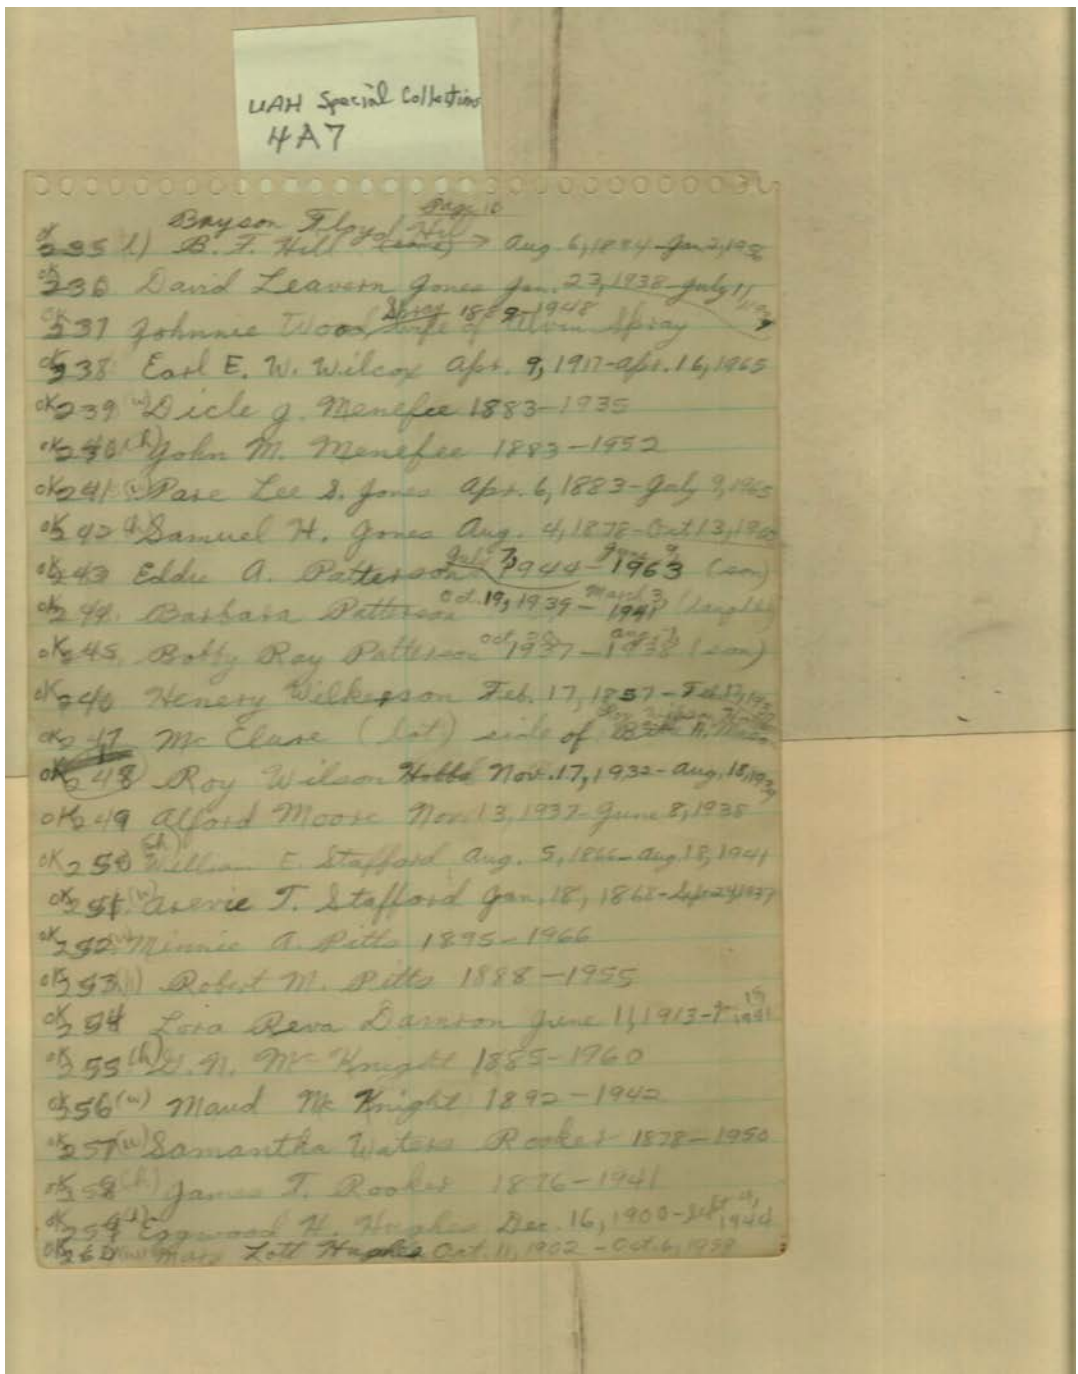 UAH Special Collections
4A7
Page 10
Bryson Floyd Hill
235 h) B. F. Hill → Aug 6, 1884 - Jan 2, 19
ok 236 David Leavern Jones Jan. 23, 1938 - July 11,
ok 237 Johnnie Wood Spray wife of Alvin Spray 1889-1948
ok 238 Earl E. W. Wilcox Apr. 9, 1917 - Apr. 16, 1965
ok 239 (w) Dicle J. Menefee 1883-1935
ok 240 (h) John M. Menefee 1883-1952
ok 241 Lee S. Jones Apr. 6, 1883 - July 9, 1965
ok 242 (h) Samuel H. Jones Aug. 4, 1878 - Oct 13, 1960
ok 243 Eddie A. Patterson July 7, 1944 - 9, 1963 (son)
ok 244 Barbara Patterson Oct. 19, 1939 - March 3, 1941
ok 245 Bobby Ray Patterson Oct. 1937 - 1938 (son)
ok 246 Henery Wilkerson Feb. 17, 1857 - Feb.
ok 247 Mc Clure (lot) side of
ok 248 Roy Wilson Hobbs Nov. 17, 1932 - Aug. 18, 1939
ok 249 Alford Moore Nov. 13, 1937 - June 8, 1938
ok 250 (h) William E. Stafford Aug. 5, 1866 - Aug. 18, 1941
ok 251 (w) Arevie T. Stafford Jan. 18, 1868 - Sep. 24, 1937
ok 252 (w) Minnie A. Pitts 1895-1966
ok 253 (h) Robert M. Pitts 1888-1955
ok 254 Lora Reva Damron June 11, 1913 - 15, 1941
ok 255 (h) G. N. Mc Knight 1885-1960
ok 256 (w) Maud Mc Knight 1892-1942
ok 257 (w) Samantha Waters Rooker 1878-1950
ok 258 (h) James T. Rooker 1876-1941
ok 259 (h) Eggwood H. Hughes Dec. 16, 1900 - Sept 4, 1944
ok 260 (w) Mary Lott Hughes Oct. 11, 1902 - Oct. 6, 1959